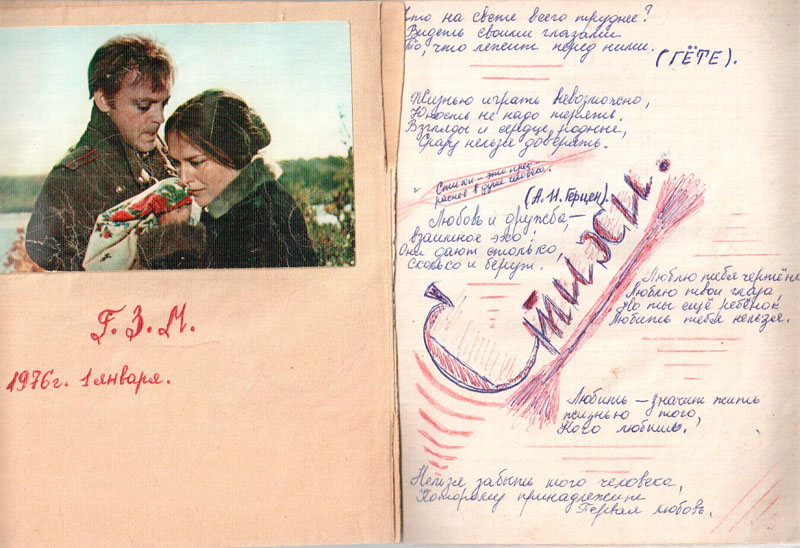 Г.З.М.
1976г. 1 января.
Что на свете всего труднее?
Видеть своими глазами
То, что лежит перед ними.
(ГЁТЕ).
Жизнью играть невозможно,
Юность не надо терять.
Взгляды и сердце, родные,
Сразу нельзя доверять.
Стихи – это прек
расное в душе человека.
(А.И. Герцен).
Любовь и дружба, –
взаимное эхо:
Они дают столько,
Сколько и берут.
Стихи.
Люблю тебя чертёнок
Люблю твои глаза,
Но ты ещё ребёнок
Любить тебя нельзя.
Любить – значит жить
жизнью того,
Кого любишь.
Нельзя забыть того человека,
Которому принадлежит
Первая любовь.